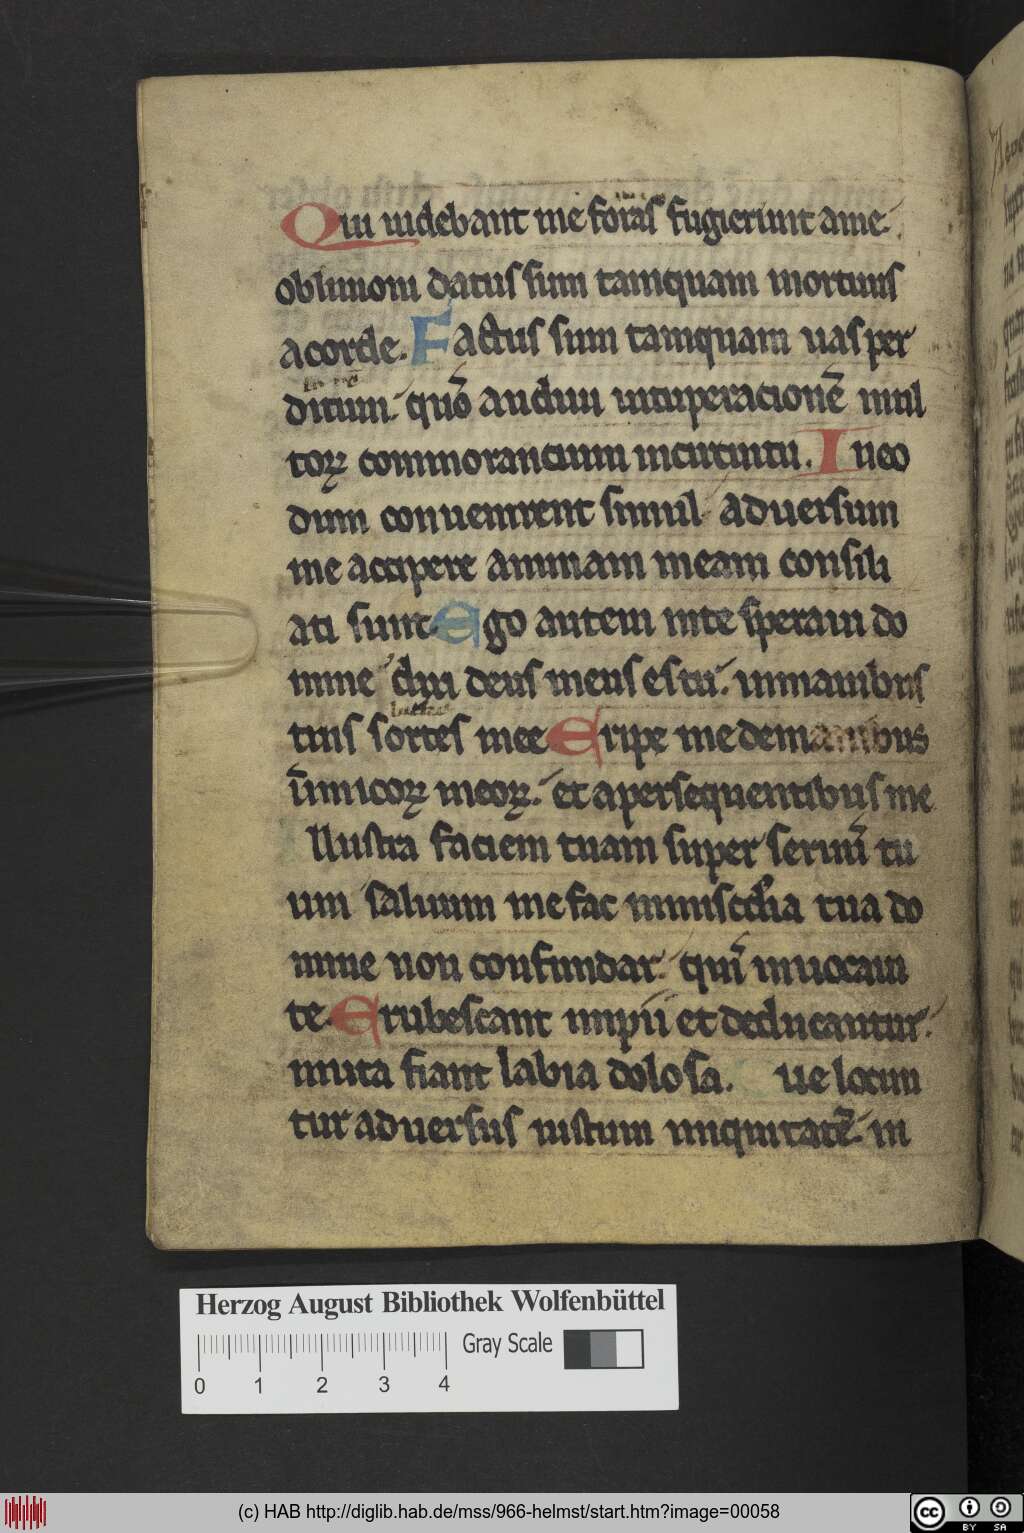 Qui uidebant me foras fugierunt ame.
obliuioni datus sum tamquam mortuus
acorde. Factus sum tamquam uas per
ditum. quō audiui uituperacionē mul
torꝝ commorancium incircuitu. Ineo
dum conuenirent simul aduersum
me accipere animam meam consili
ati sunt. Ego autem inte speraui do
mine dixi deus meus es tu. inmanibus
tuis sortes mee Eripe me demanibus
īimicorꝝ meorꝝ. et apersequentibus me
llustra faciem tuam super seruū tu
um saluum me fac inmisc̄dia tua do
mine non confundar. qum̄ inuocaui
te. Erubescant impii et deducantur.
muta fiant labia dolosa. ue locun
tur aduersus iustum iniquitatē. in
Herzog August Bibliothek Wolfenbüttel
Gray Scale
0 1 2 3 4
(c) HAB http://diglib.hab.de/mss/966-helmst/start.htm?image=00058
cc BY SA